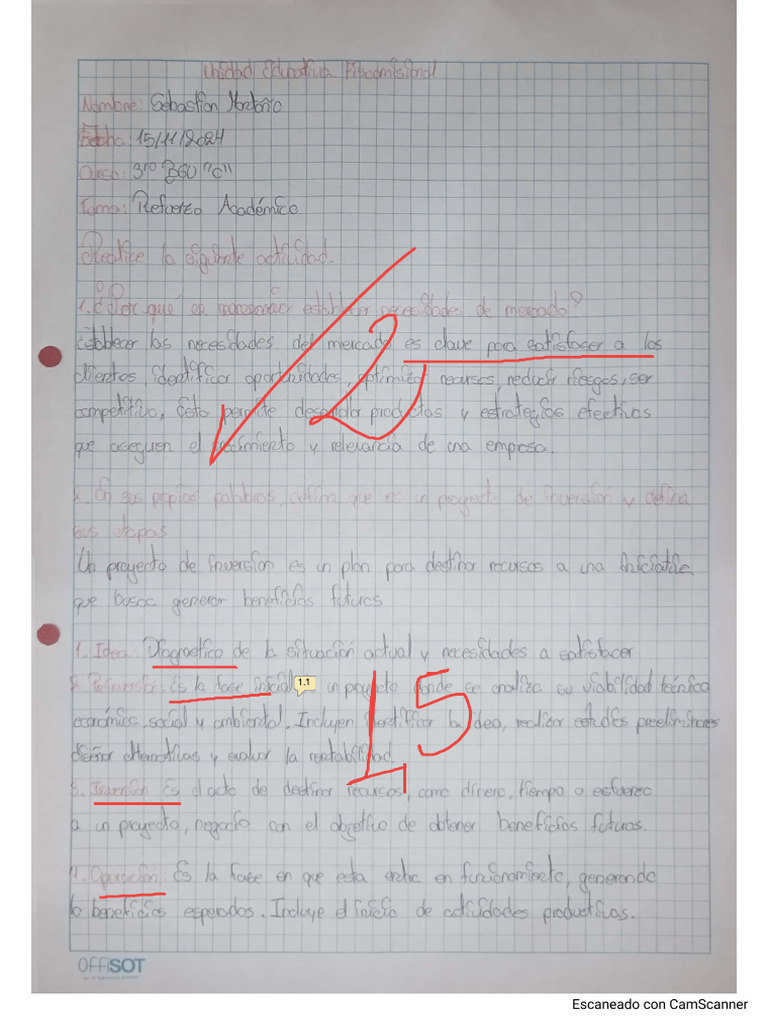 Unidad Educativa Fiscomisional
Nombre: Sebastian
Fecha: 15/11/2024
Curso: 3ro BGU "C"
Tema: Refuerzo Académico
Realice la siguiente actividad.
1. ¿Por qué es necesario establecer necesidades de mercado?
Establecer las necesidades del mercado es clave para satisfacer a los
clientes, identificar oportunidades, optimizar recursos, reducir riesgos, ser
competitivo, Esto permite desarrollar productos y estrategias efectivas
que aseguren el crecimiento y relevancia de una empresa.
2
2. En sus propias palabras, defina que es un proyecto de inversión y defina
sus etapas
Un proyecto de inversion es un plan para destinar recursos a una iniciativa
que busca generar beneficios futuros
1. Idea: Diagnostico de la situación actual y necesidades a satisfacer
2. Preinversión: Es la fase inicial 1.1 un proyecto donde se analiza su viabilidad técnica
económica, social y ambiental. Incluyen identificar la idea, realizar estudios preeliminares
diseñar alternativas y evaluar la rentabilidad.
1,5
3. Inversión Es el acto de destinar recursos, como dinero, tiempo o esfuerzo
a un proyecto, negocio con el objetivo de obtener beneficios futuros.
4. Operación: Es la fase en que esta entra en funcionamiento, generando
lo beneficios esperados. Incluye el inicio de actividades productivas.
OFFISOT
Escaneado con CamScanner